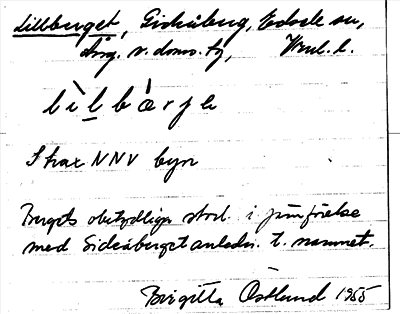 Lillberget, Gideåberg, Edsele sn,
Ång. s. doms. tg, Vnl. l.
lìlbárje
Strax NNV byn
Bergets obetydliga storl. i jämförelse
med Gideåberget anledn. t. namnet.
Birgitta Östlund 1955